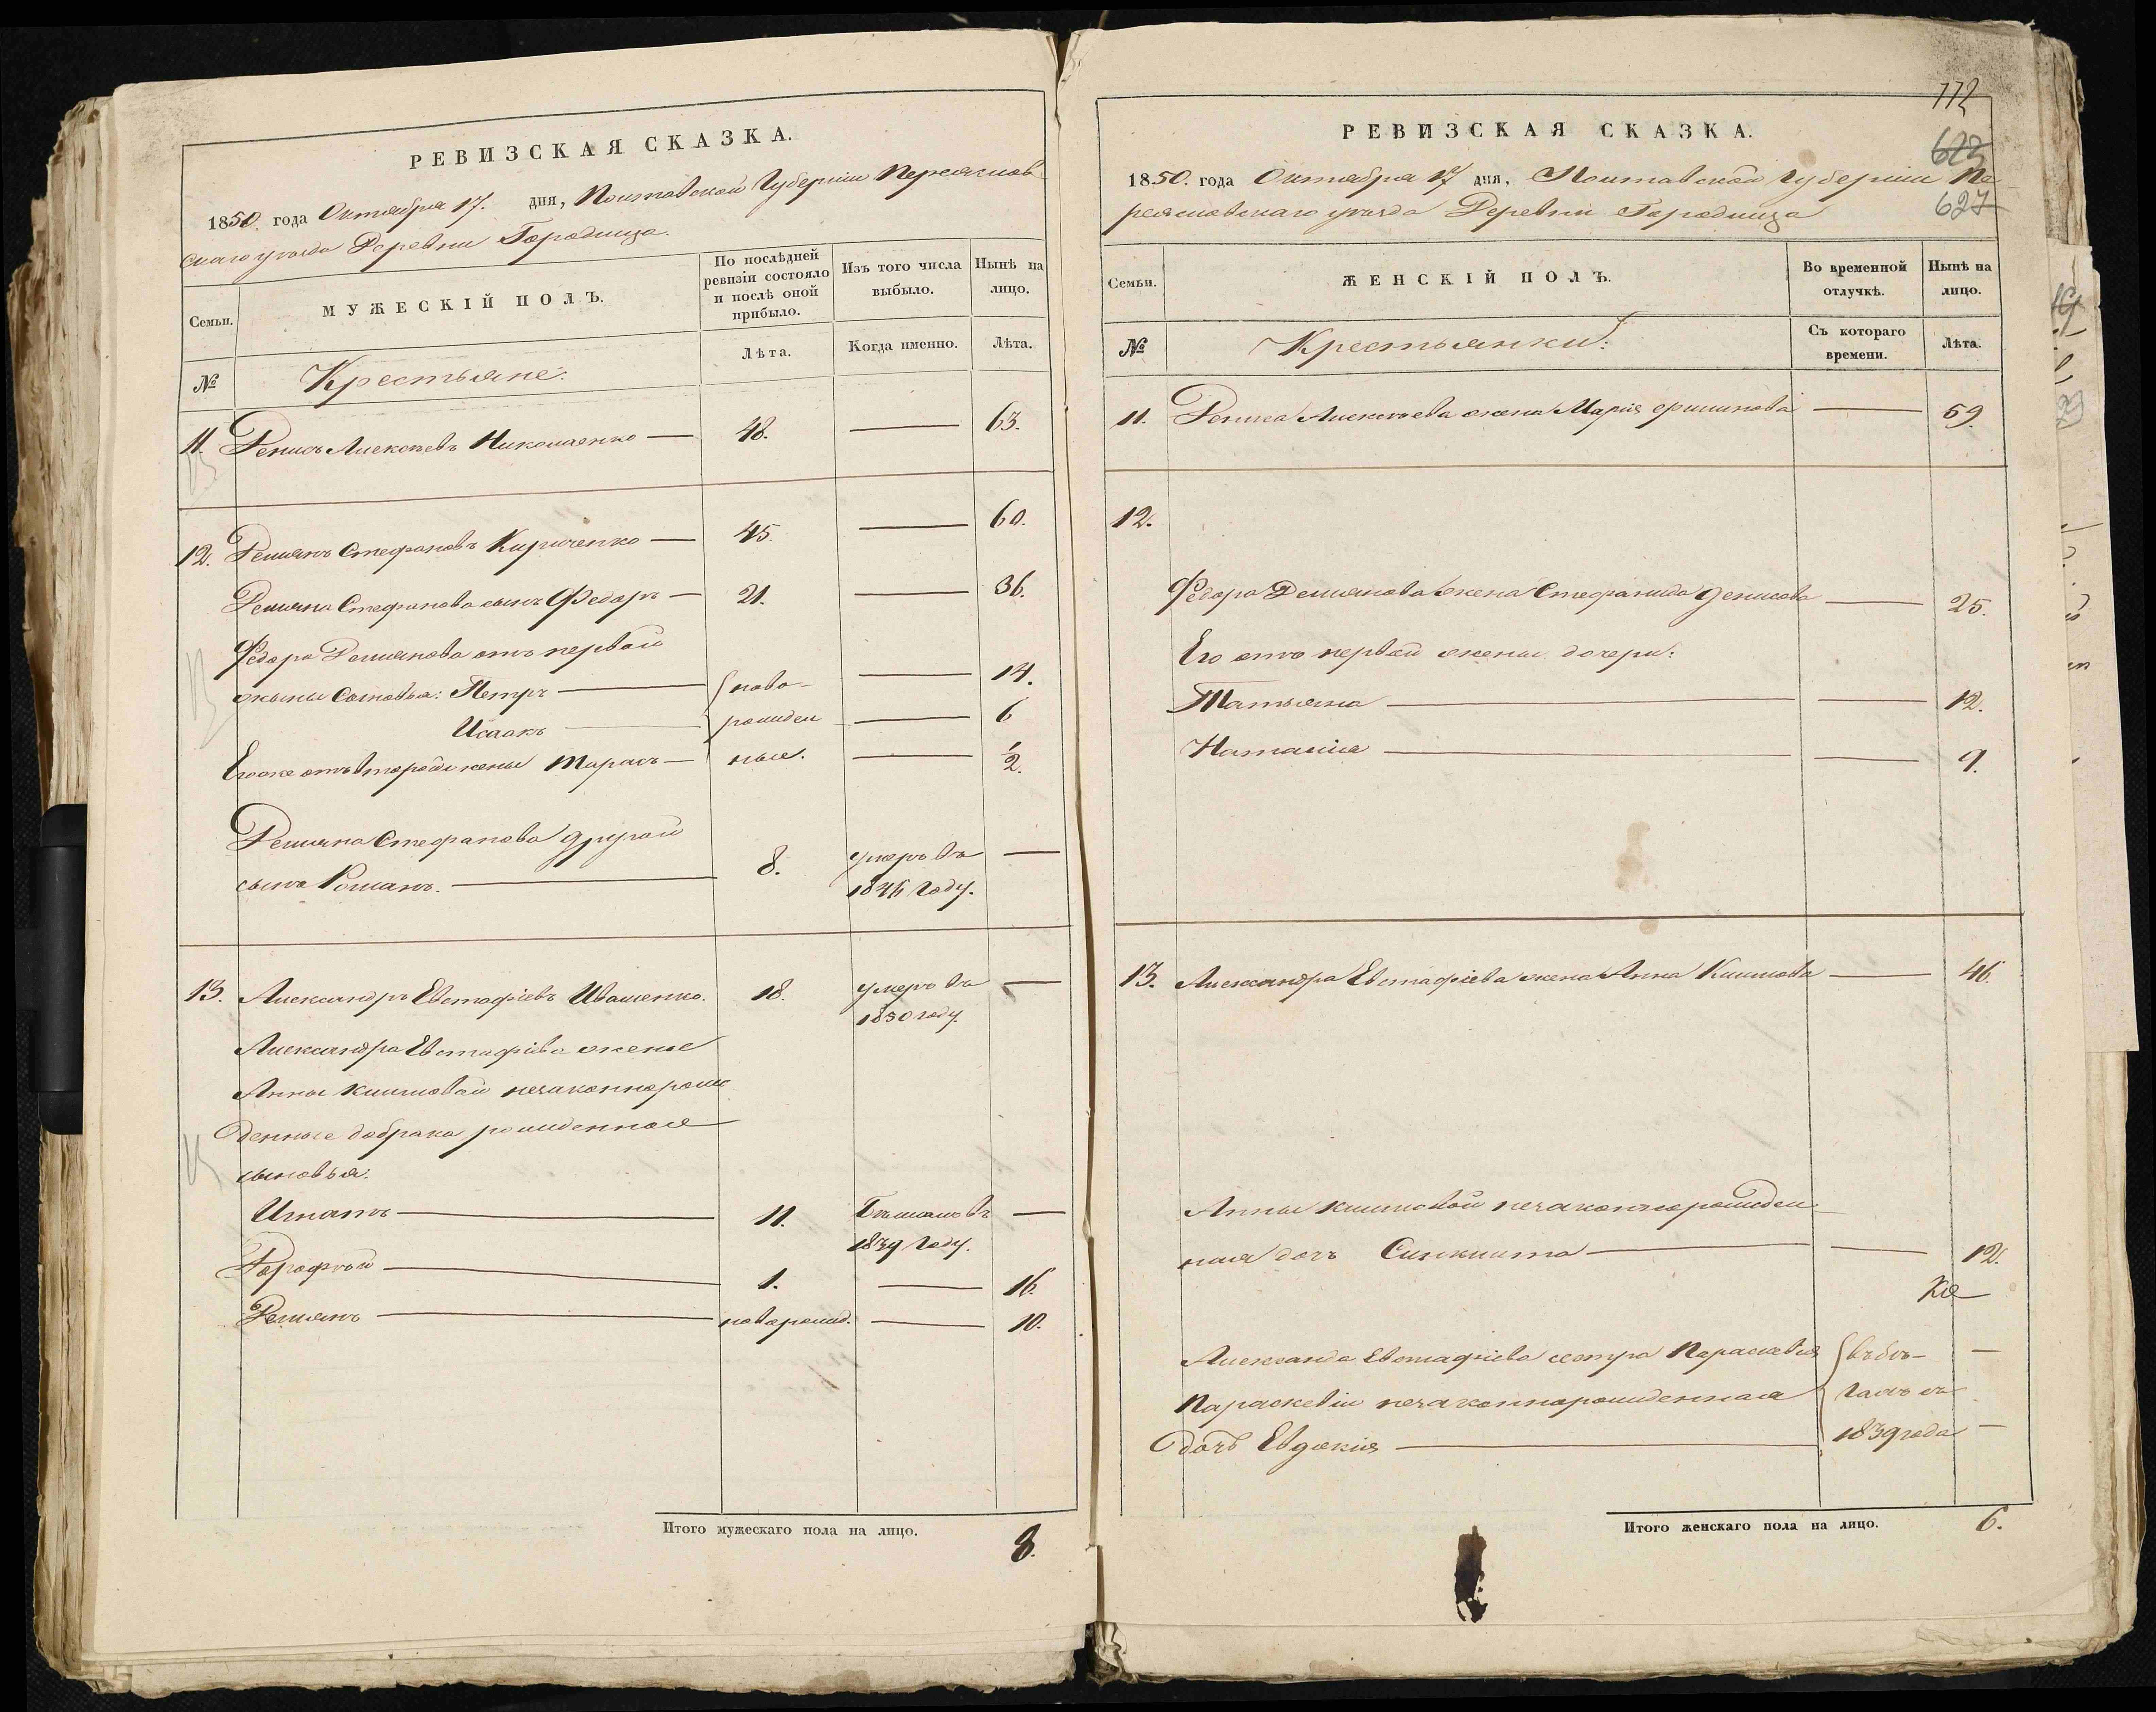 РЕВИЗСКАЯ СКАЗКА.
1850. года Октября 17. дня, Полтавской Губерніи Переяслов
скаго уезда Деревни Городища.
Семьи.
МУЖЕСКІЙ ПОЛЪ.
По послѣдней ревизіи состояло и послѣ оной прибыло.
Изъ того числа выбыло.
Нынѣ на лицо.
№
Крестьяне:
Лѣта.
Когда именно.
Лѣта.
11. Денисъ Алексѣевъ Николаенко — 48. — 63.
12. Демянъ Стефановъ Кириченко — 45. — 60.
Демяна Стефанова сынъ Федоръ — 21. — 36.
Федора Демянова отъ первой
жены сыновья: Петръ — ново- — 14.
Исаакъ — рожден — 6
Егоже отъ второй жены Тарасъ — ные. — 1/2.
Демяна Стефанова другой
сынъ Романъ. — 8. умеръ въ —
1846 году.
13. Александръ Евстафіевъ Иващенко. 18. умеръ въ —
1850 году.
Александра Евстафіева жены
Анны Климовой незаконнорож
денные до брака рожденные
сыновья:
Игнатъ — 11. Бѣжалъ въ —
1839 году.
Дорофѣй — 1. — 16.
Демянъ — новорожд. — 10.
Итого мужескаго пола на лицо.
8.
112
623
627
РЕВИЗСКАЯ СКАЗКА.
1850. года Октября 17 дня, Полтавской Губерніи Пе
реясловскаго уезда Деревни Городища
Семьи.
ЖЕНСКІЙ ПОЛЪ.
Во временной отлучкѣ.
Нынѣ на лицо.
№
Крестьянки:
Съ котораго времени.
Лѣта.
11. Дениса Алексѣева жена Марія Филипова — 59.
12.
Федора Демянова жена Стефанида Денисова — 25.
Его отъ первой жены дочери:
Татьяна — — 12.
Наталія — — 9.
13. Александра Евстафіева жена Анна Климова — 46.
Анны Климовой незаконнорожден
ная дочь Синклита — — 12.
Александра Евстафіева сестра Параскевія въ бѣ- —
Параскевіи незаконнорожденная гахъ съ
дочь Евдокія — 1839 года —
Итого женскаго пола на лицо.
6.